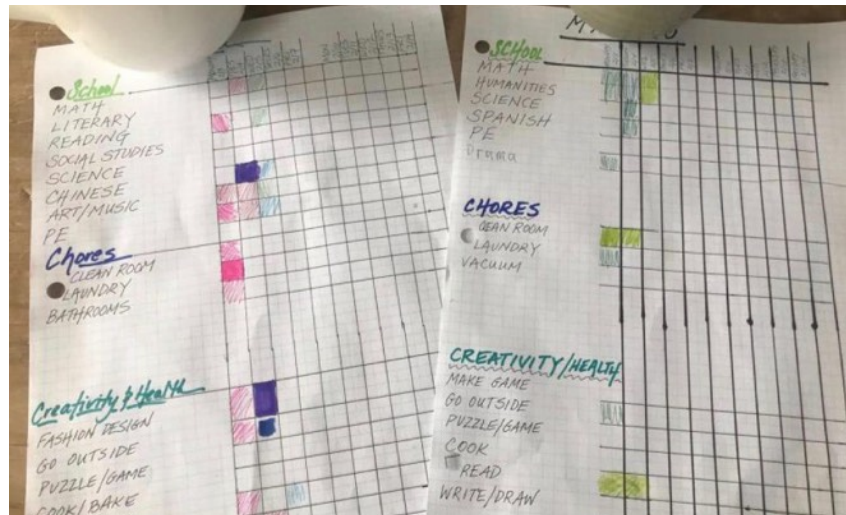 School
MATH
LITERARY
READING
SOCIAL STUDIES
SCIENCE
CHINESE
ART/MUSIC
PE
Chores
CLEAN ROOM
LAUNDRY
BATHROOMS
Creativity & Health
FASHION DESIGN
GO OUTSIDE
PUZZLE/GAME
COOK/BAKE
SCHOOL
MATH
HUMANITIES
SCIENCE
SPANISH
PE
Drama
CHORES
CLEAN ROOM
LAUNDRY
VACUUM
CREATIVITY/HEALTH
MAKE GAME
GO OUTSIDE
PUZZLE/GAME
COOK
READ
WRITE/DRAW